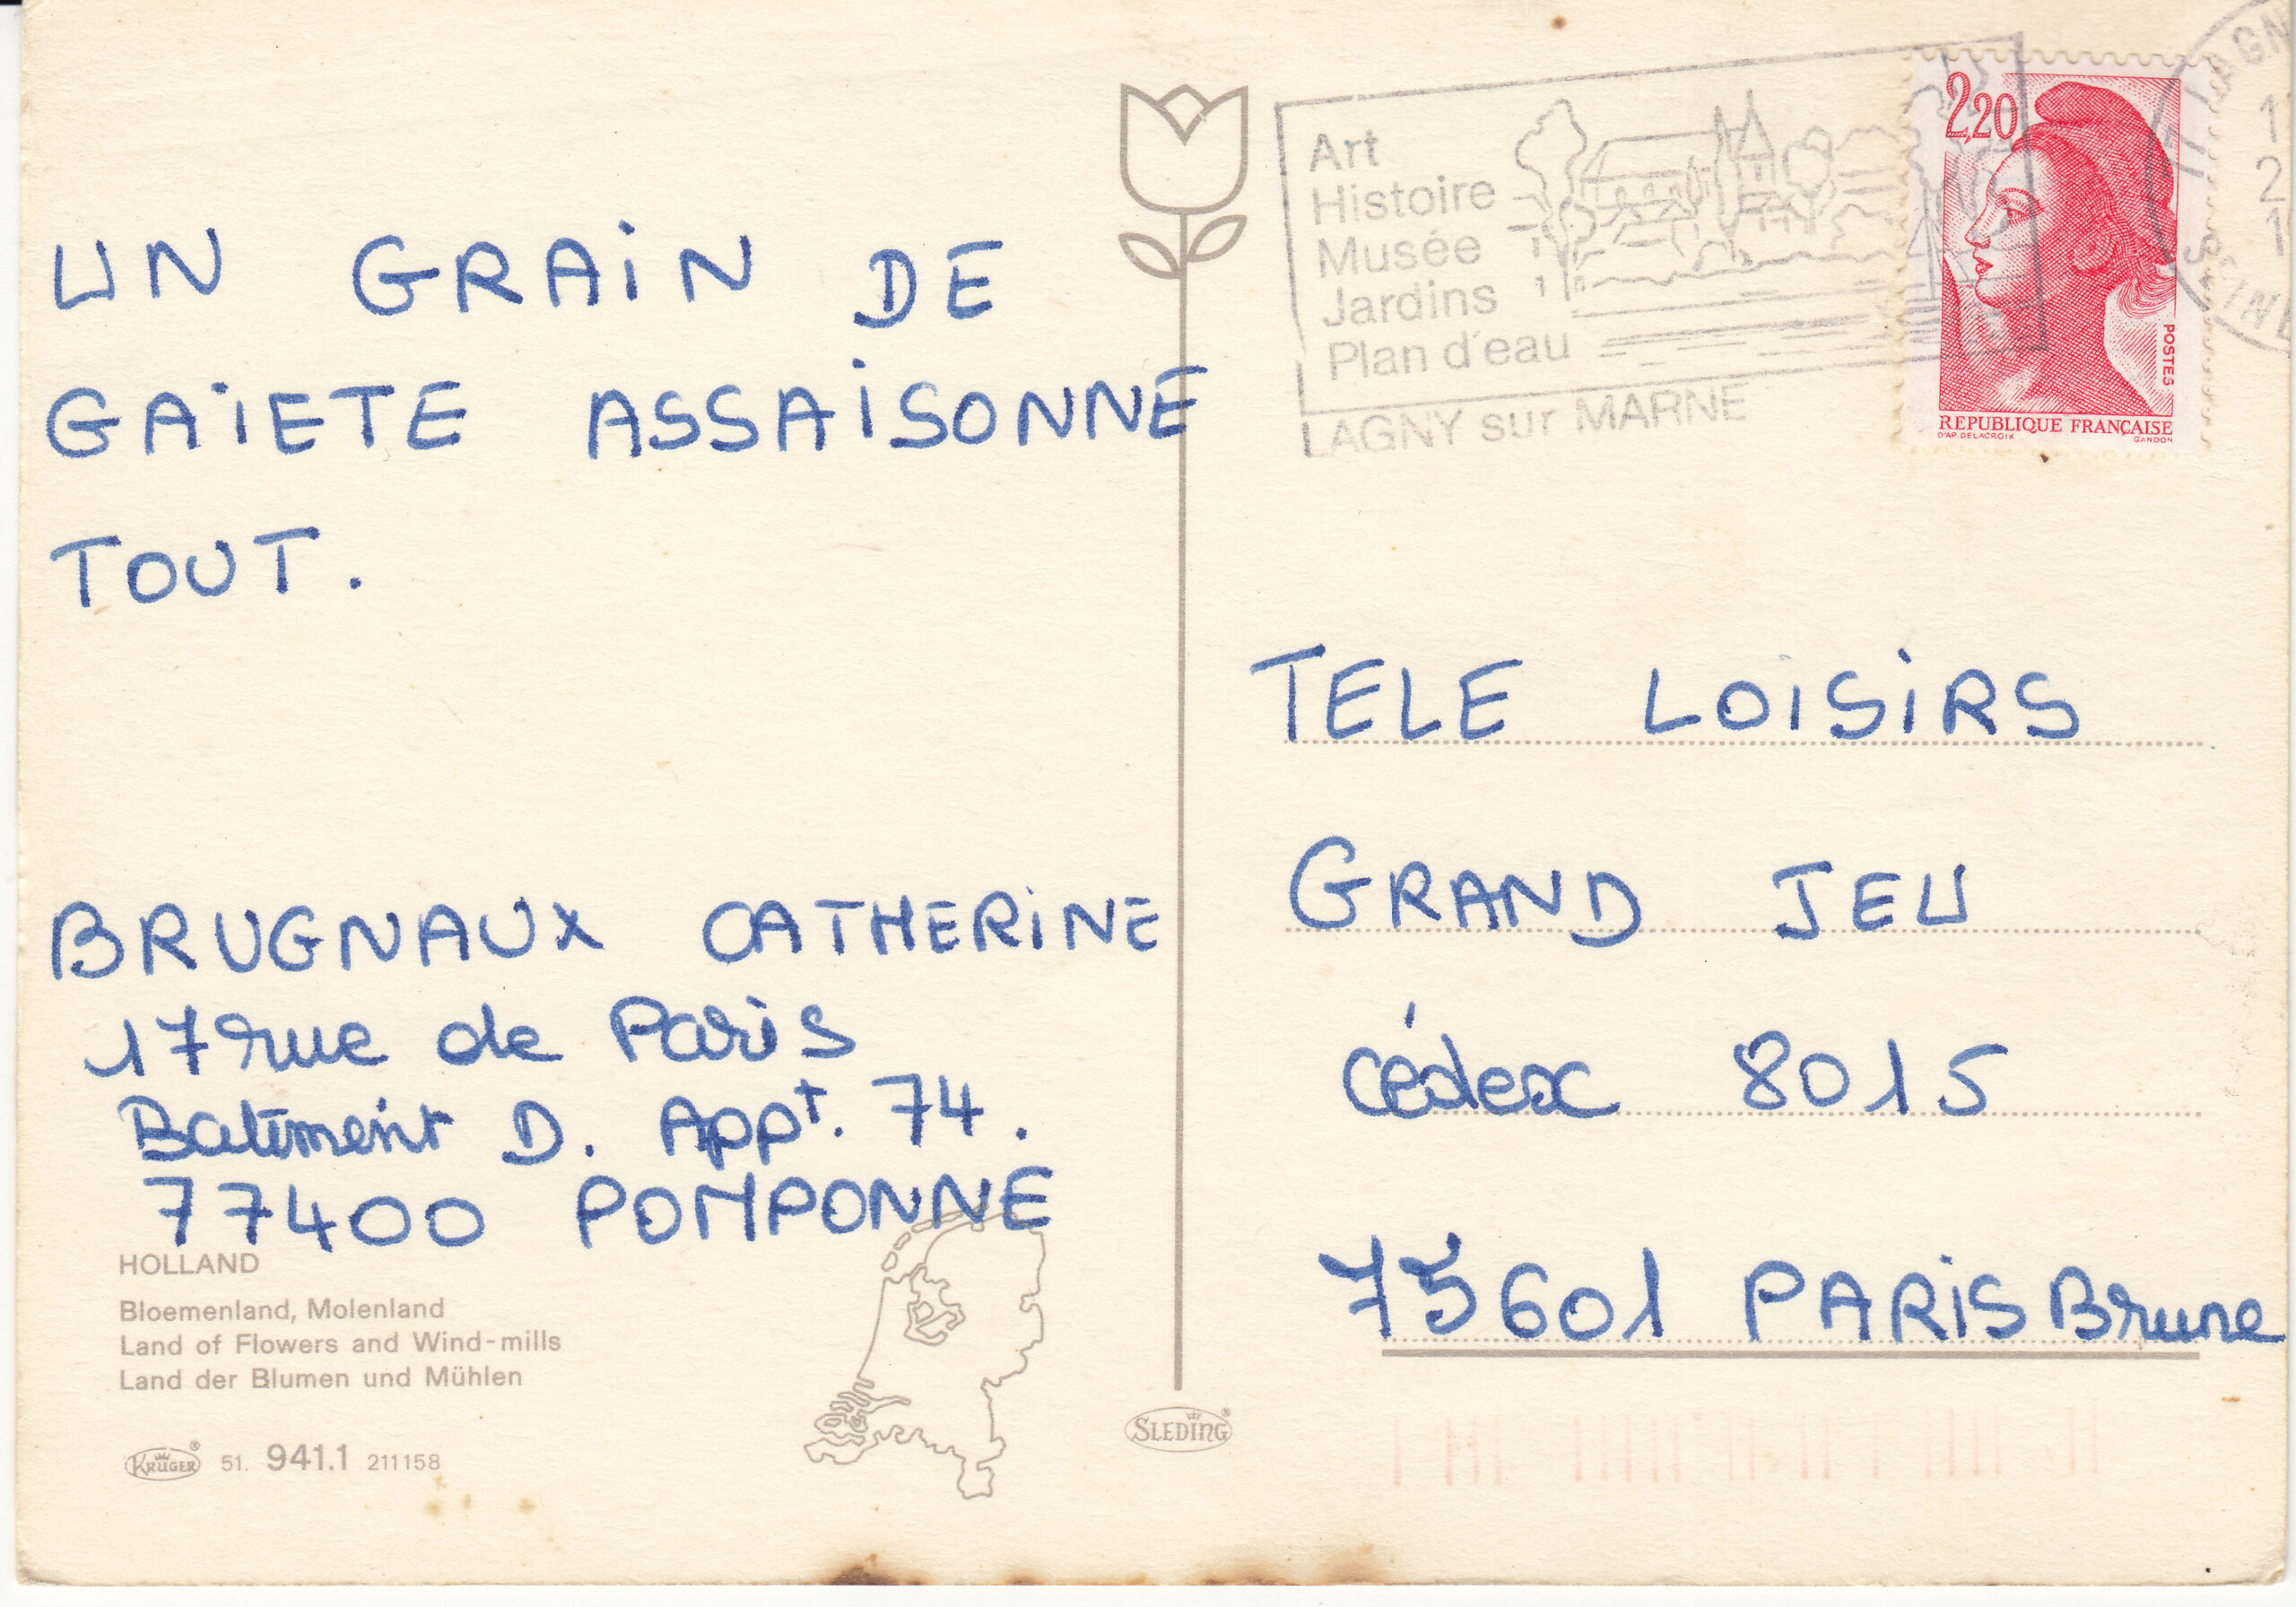 UN GRAIN DE
GAIETE ASSAISONNE
TOUT.
BRUGNAUX CATHERINE
17 rue de Paris
Batiment D. Appt. 74.
77400 POMPONNE
HOLLAND
Bloemenland, Molenland
Land of Flowers and Wind-mills
Land der Blumen und Mühlen
KRÜGER® 51. 941.1 211158
SLEDING®
Art
Histoire
Musée
Jardins
Plan d'eau
LAGNY sur MARNE
2,20
POSTES
REPUBLIQUE FRANÇAISE
D'AP. DELACROIX GANDON
TELE LOISIRS
GRAND JEU
cédex 8015
75601 PARIS Brune